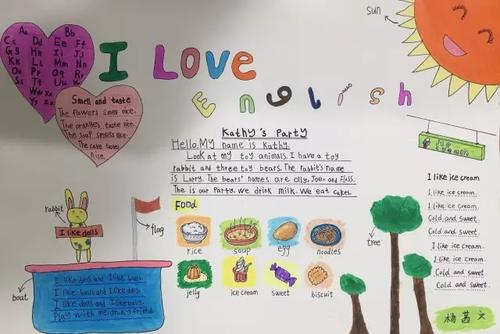 Aa Bb
Cc Dd Ee Ff
Gg Hh Ii Jj
Kk Ll Mm Nn
Oo Pp Qq Rr
Ss Tt Uu
Ww Xx
Yy Zz
I Love
English
sun
Smell and taste
The flowers smell nice.
The oranges taste nice.
The soup smells nice.
The cake tastes
nice.
Kathy's Party
Hello. My name is Kathy.
Look at my toy animals. I have a toy
rabbit and three toy bears. The rabbit's name
is Larry. The bears' names are Olly, Joe and Floss.
The is our Party. We drink milk. We eat cakes.
Food
rice
soup
egg
noodles
jelly
ice cream
sweet
biscuit
rabbit
I like dolls
flag
boat
I like dolls and I like
I like balls and I like dolls.
I like dolls and I like balls.
Play with me in my friend
tree
I like ice cream
I like ice cream.
I like ice cream.
Cold and sweet.
Cold and sweet.
I like ice cream.
I like ice cream.
Cold and sweet.
Cold and sweet.
杨茜文